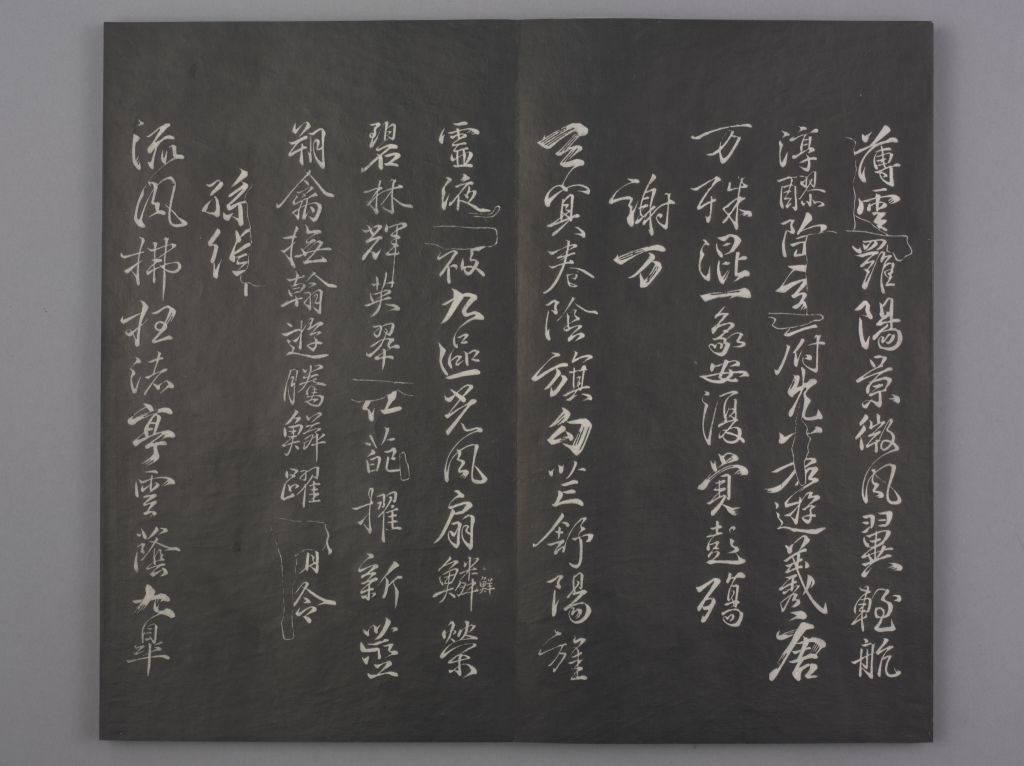 薄雲羅陽景微風翼輕航
淳醪陶玄府兀若遊羲唐
万殊混一象安復覺彭殤
謝万
冥卷陰旗勾芒舒陽旌
靈液被九區光風扇鱗鮮榮
碧林輝英翠紅葩擢新莖
朔禽撫翰遊騰鱗躍清泠
孫綽
流風拂枉渚亭雲蔭九皐